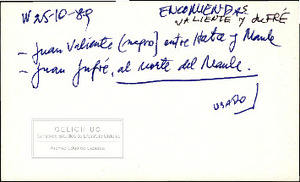 W 25-10-89
ENCOMIENDAS
VALIENTE y JUFRÉ
- Juan Valiente (negro) entre Itata y Maule
- Juan Jufré, al norte del Maule.
USADO
CELICH UC